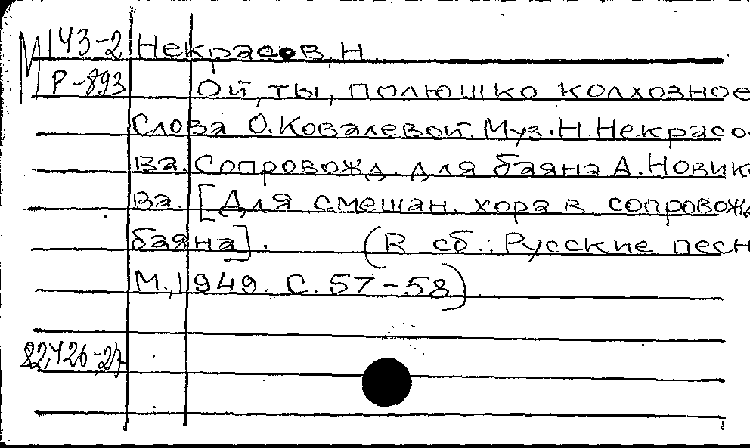 М 143-2 Некрасов, Н
Р-893 Ой, ты, полюшко колхозное
Слова О. Ковалевой. Муз. Н. Некрасо-
ва. Сопровожд. для баяна А. Новико
ва. [Для смешан. хора в сопровожд
баяна]. (В сб.: Русские песн
М., 1949. С. 57-58).